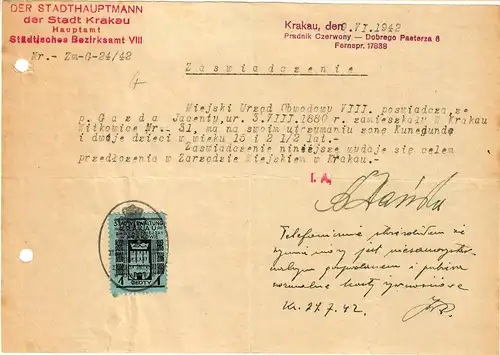 DER STADTHAUPTMANN
der Stadt Krakau
Hauptamt
Städtisches Bezirksamt VIII
Nr.- Zm-G-24/42
Krakau, den 9.VI.1942
Prądnik Czerwony — Dobrego Pasterza 6
Fernspr. 17838
Zaświadczenie
Miejski Urząd Obwodowy VIII. poświadcza, że
p. Gazda Jacenty, ur. 3.VIII.1880 r. zamieszkały w Krakau
Witkowice Nr.- 31, ma na swoim utrzymaniu żonę Kunegundę
i dwoje dzieci w wieku 15 i 2 1/2 lat.-
Zaświadczenie niniejsze wydaje się celem
przedłożenia w Zarządzie Miejskiem w Krakau.-
I. A.
Telefonicznie stwierdziłem że
wymieniony jest
i pobiera
normalne karty żywnościowe
Kr. 27.7.42
1 ZŁOTY 1